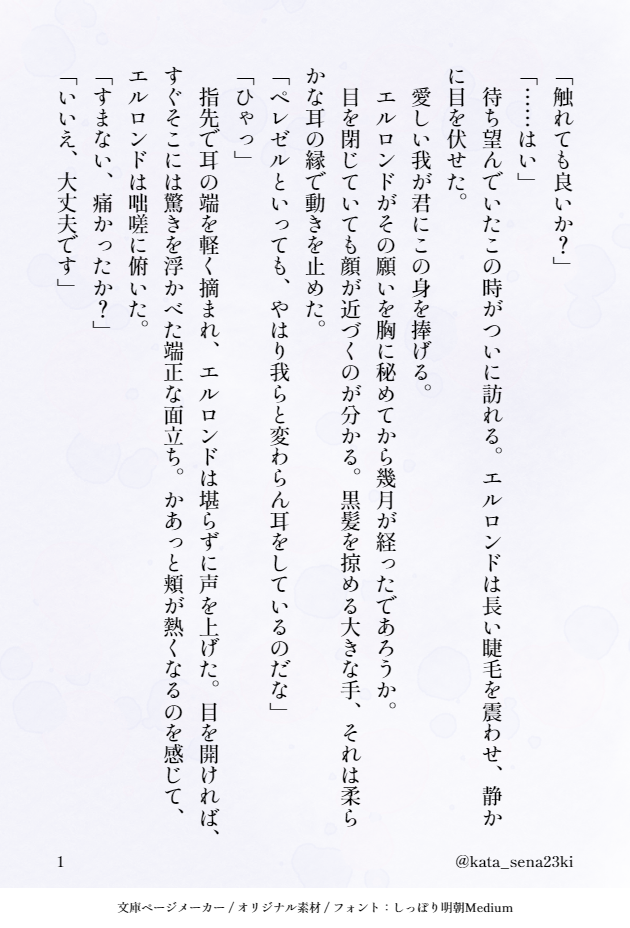 「触れても良いか？」
「……はい」
　待ち望んでいたこの時がついに訪れる。エルロンドは長い睫毛を震わせ、静か
に目を伏せた。
　愛しい我が君にこの身を捧げる。
　エルロンドがその願いを胸に秘めてから幾月が経ったであろうか。
　目を閉じていても顔が近づくのが分かる。黒髪を掠める大きな手、それは柔ら
かな耳の縁で動きを止めた。
「ペレゼルといっても、やはり我らと変わらん耳をしているのだな」
「ひゃっ」
　指先で耳の端を軽く摘まれ、エルロンドは堪らずに声を上げた。目を開ければ、
すぐそこには驚きを浮かべた端正な面立ち。かあっと頬が熱くなるのを感じて、
エルロンドは咄嗟に俯いた。
「すまない、痛かったか？」
「いいえ、大丈夫です」
1
@kata_sena23ki
文庫ページメーカー / オリジナル素材 / フォント：しっぽり明朝Medium